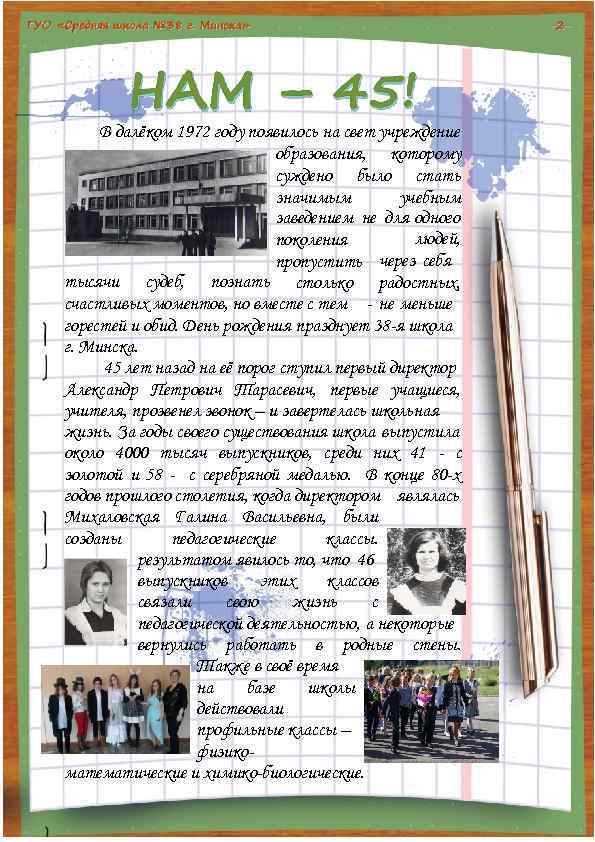 ГУО «Средняя школа №38 г. Минска»
2
НАМ – 45!
В далёком 1972 году появилось на свет учреждение
образования, которому
суждено было стать
значимым учебным
заведением не для одного
поколения людей,
пропустить через себя
тысячи судеб, познать столько радостных,
счастливых моментов, но вместе с тем - не меньше
горестей и обид. День рождения празднует 38-я школа
г. Минска.
45 лет назад на её порог ступил первый директор
Александр Петрович Тарасевич, первые учащиеся,
учителя, прозвенел звонок – и завертелась школьная
жизнь. За годы своего существования школа выпустила
около 4000 тысяч выпускников, среди них 41 - с
золотой и 58 - с серебряной медалью. В конце 80-х
годов прошлого столетия, когда директором являлась
Михаловская Галина Васильевна, были
созданы педагогические классы.
результатом явилось то, что 46
выпускников этих классов
связали свою жизнь с
педагогической деятельностью, а некоторые
вернулись работать в родные стены.
Также в своё время
на базе школы
действовали
профильные классы –
физико-
математические и химико-биологические.